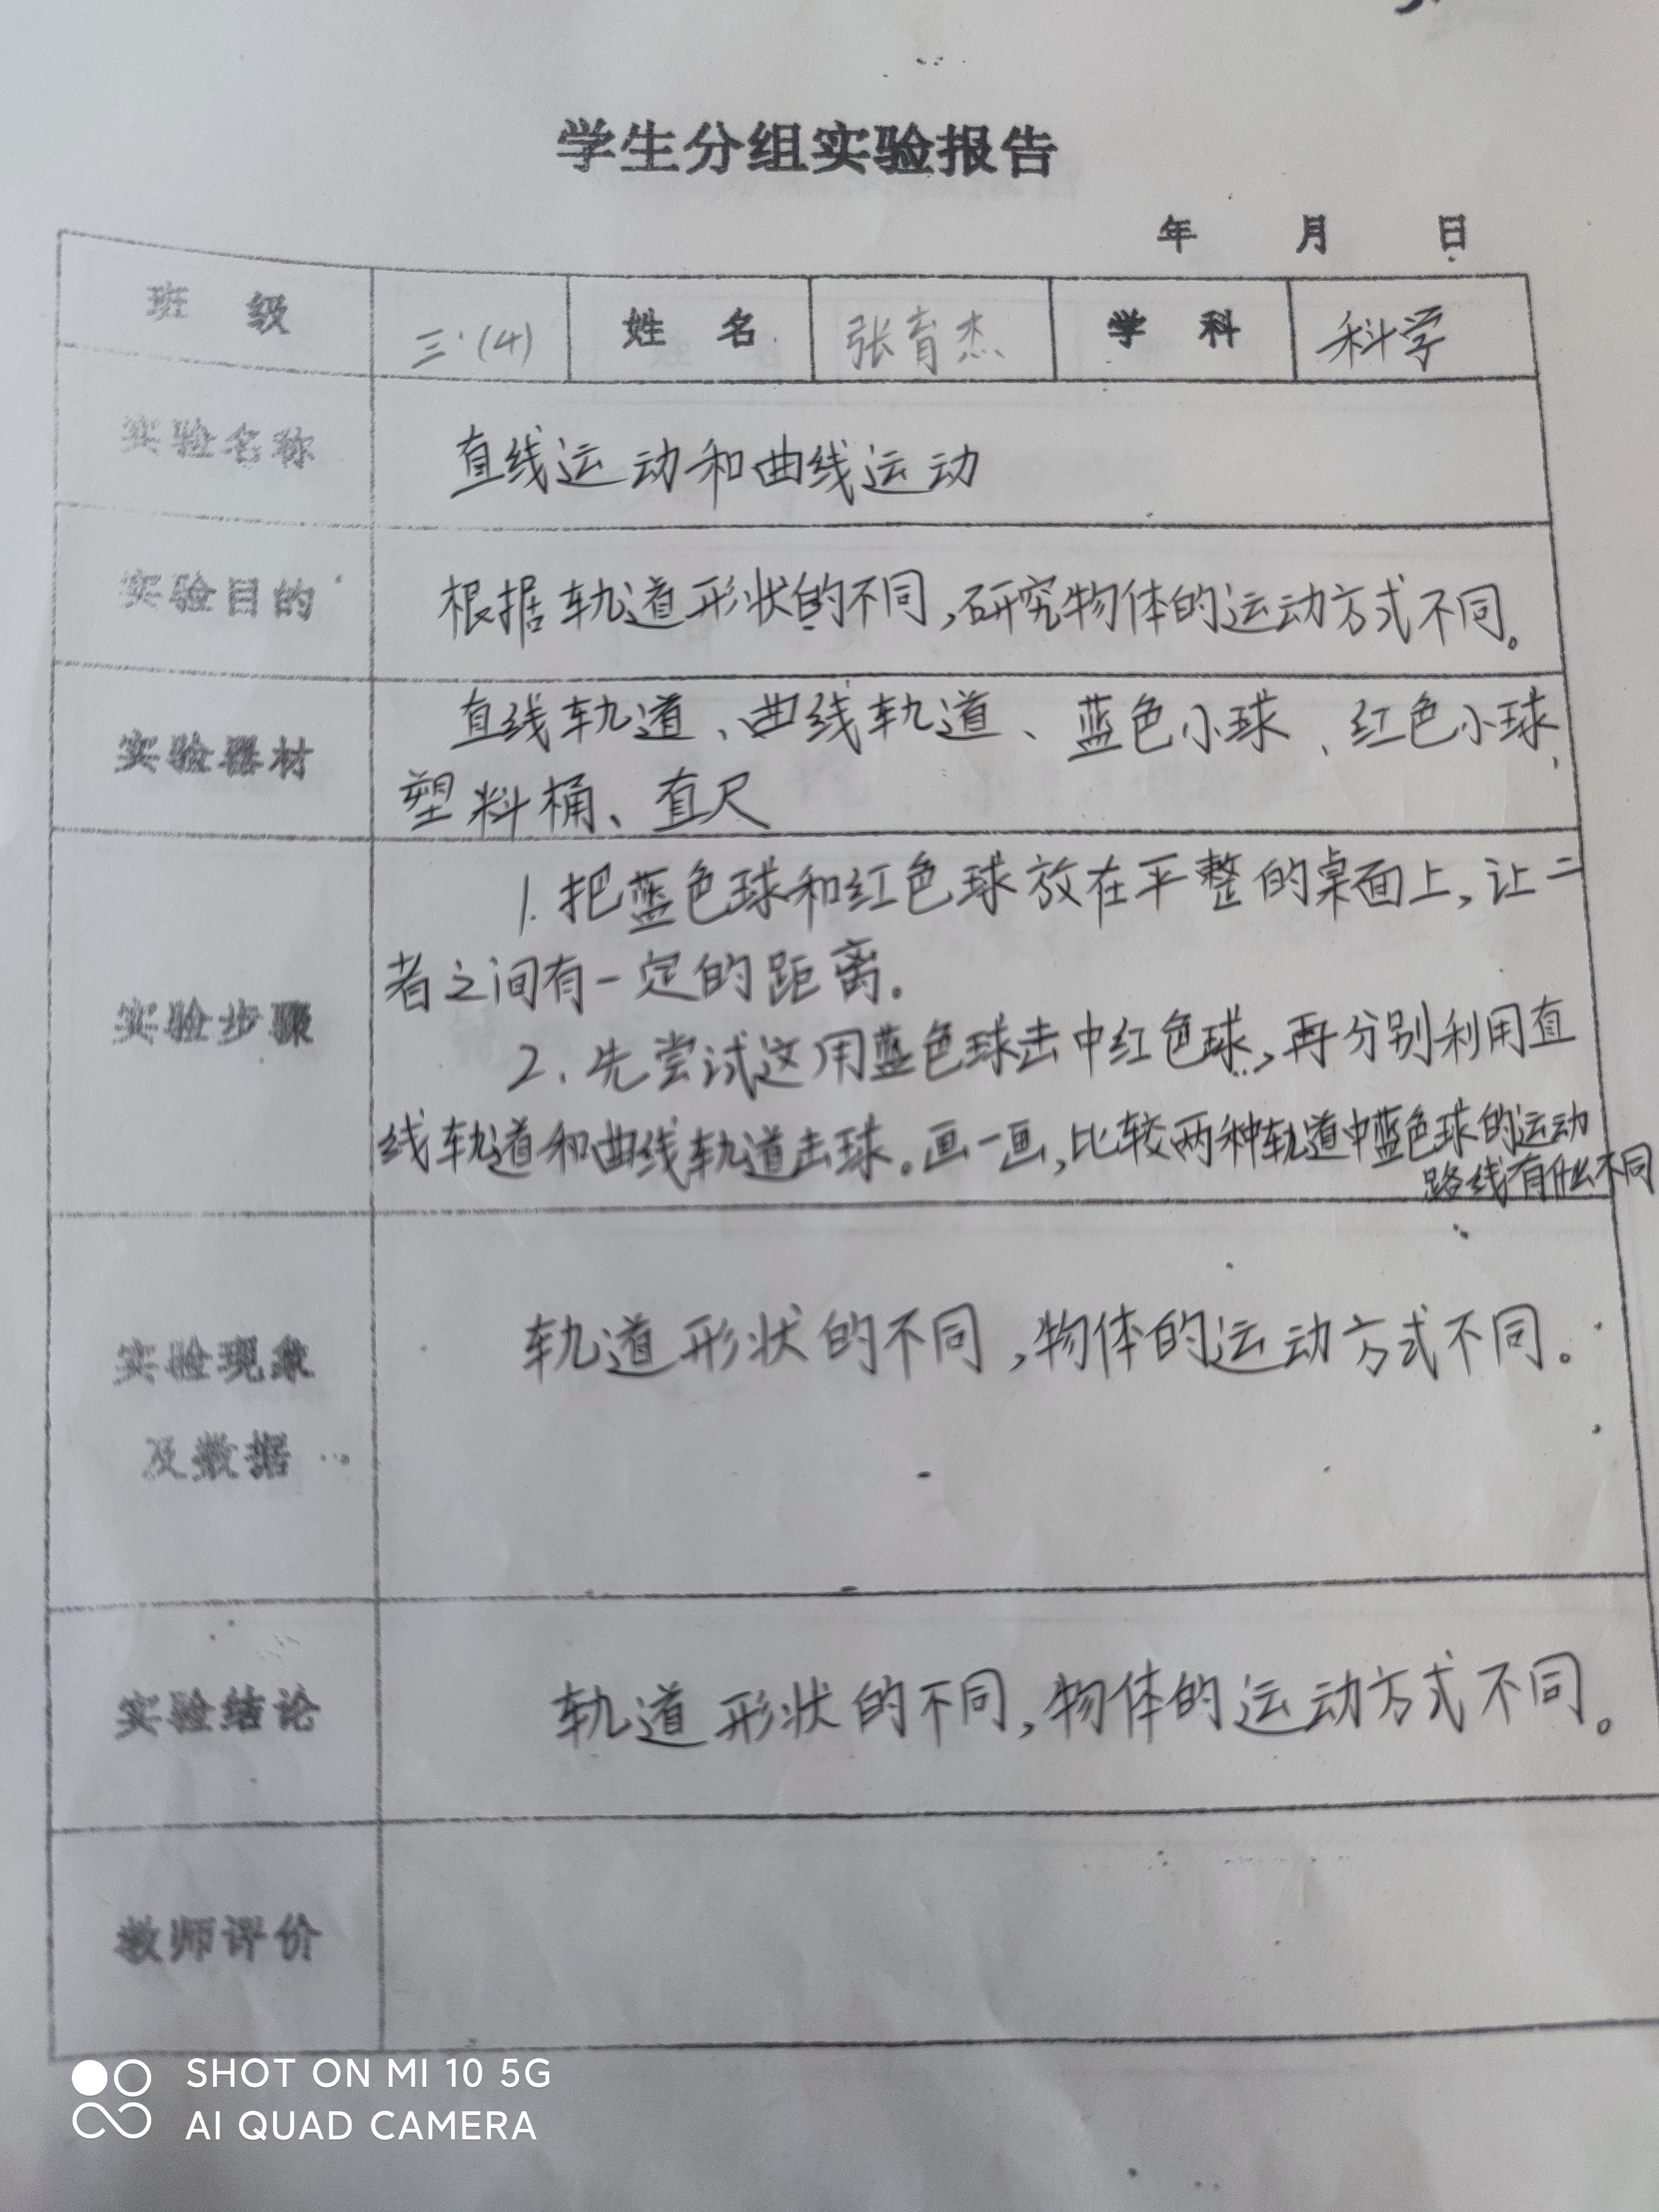 学生分组实验报告
年 月 日
班 级 三(4) 姓 名 张育杰 学 科 科学
实验名称 直线运动和曲线运动
实验目的 根据轨道形状的不同,研究物体的运动方式不同。
实验器材 直线轨道、曲线轨道、蓝色小球、红色小球、
塑料桶、直尺
1.把蓝色球和红色球放在平整的桌面上,让二
者之间有一定的距离。
实验步骤
2.先尝试这用蓝色球击中红色球,再分别利用直
线轨道和曲线轨道击球。画一画,比较两种轨道中蓝色球的运动
路线有什么不同
实验现象 轨道形状的不同,物体的运动方式不同。
及数据
实验结论 轨道形状的不同,物体的运动方式不同。
教师评价
SHOT ON MI 10 5G
AI QUAD CAMERA